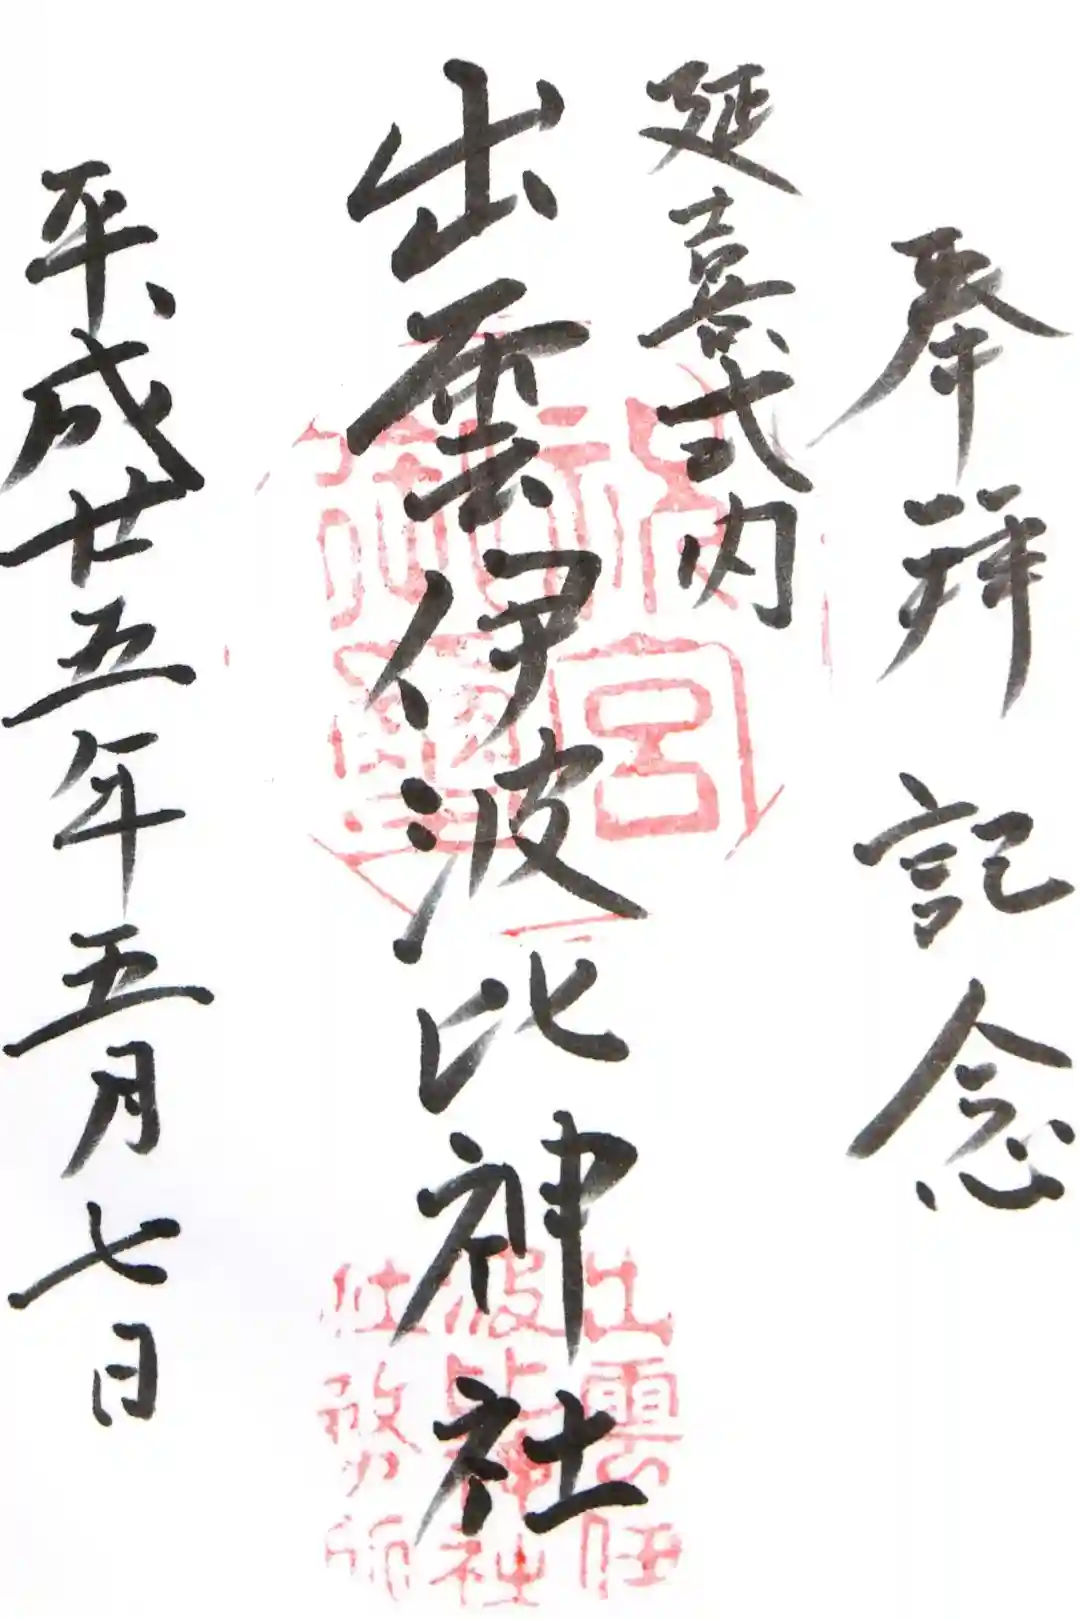 奉拝記念
延喜式内
出雲伊波比神社
平成廿五年五月七日
出雲伊
波比神社
社務所